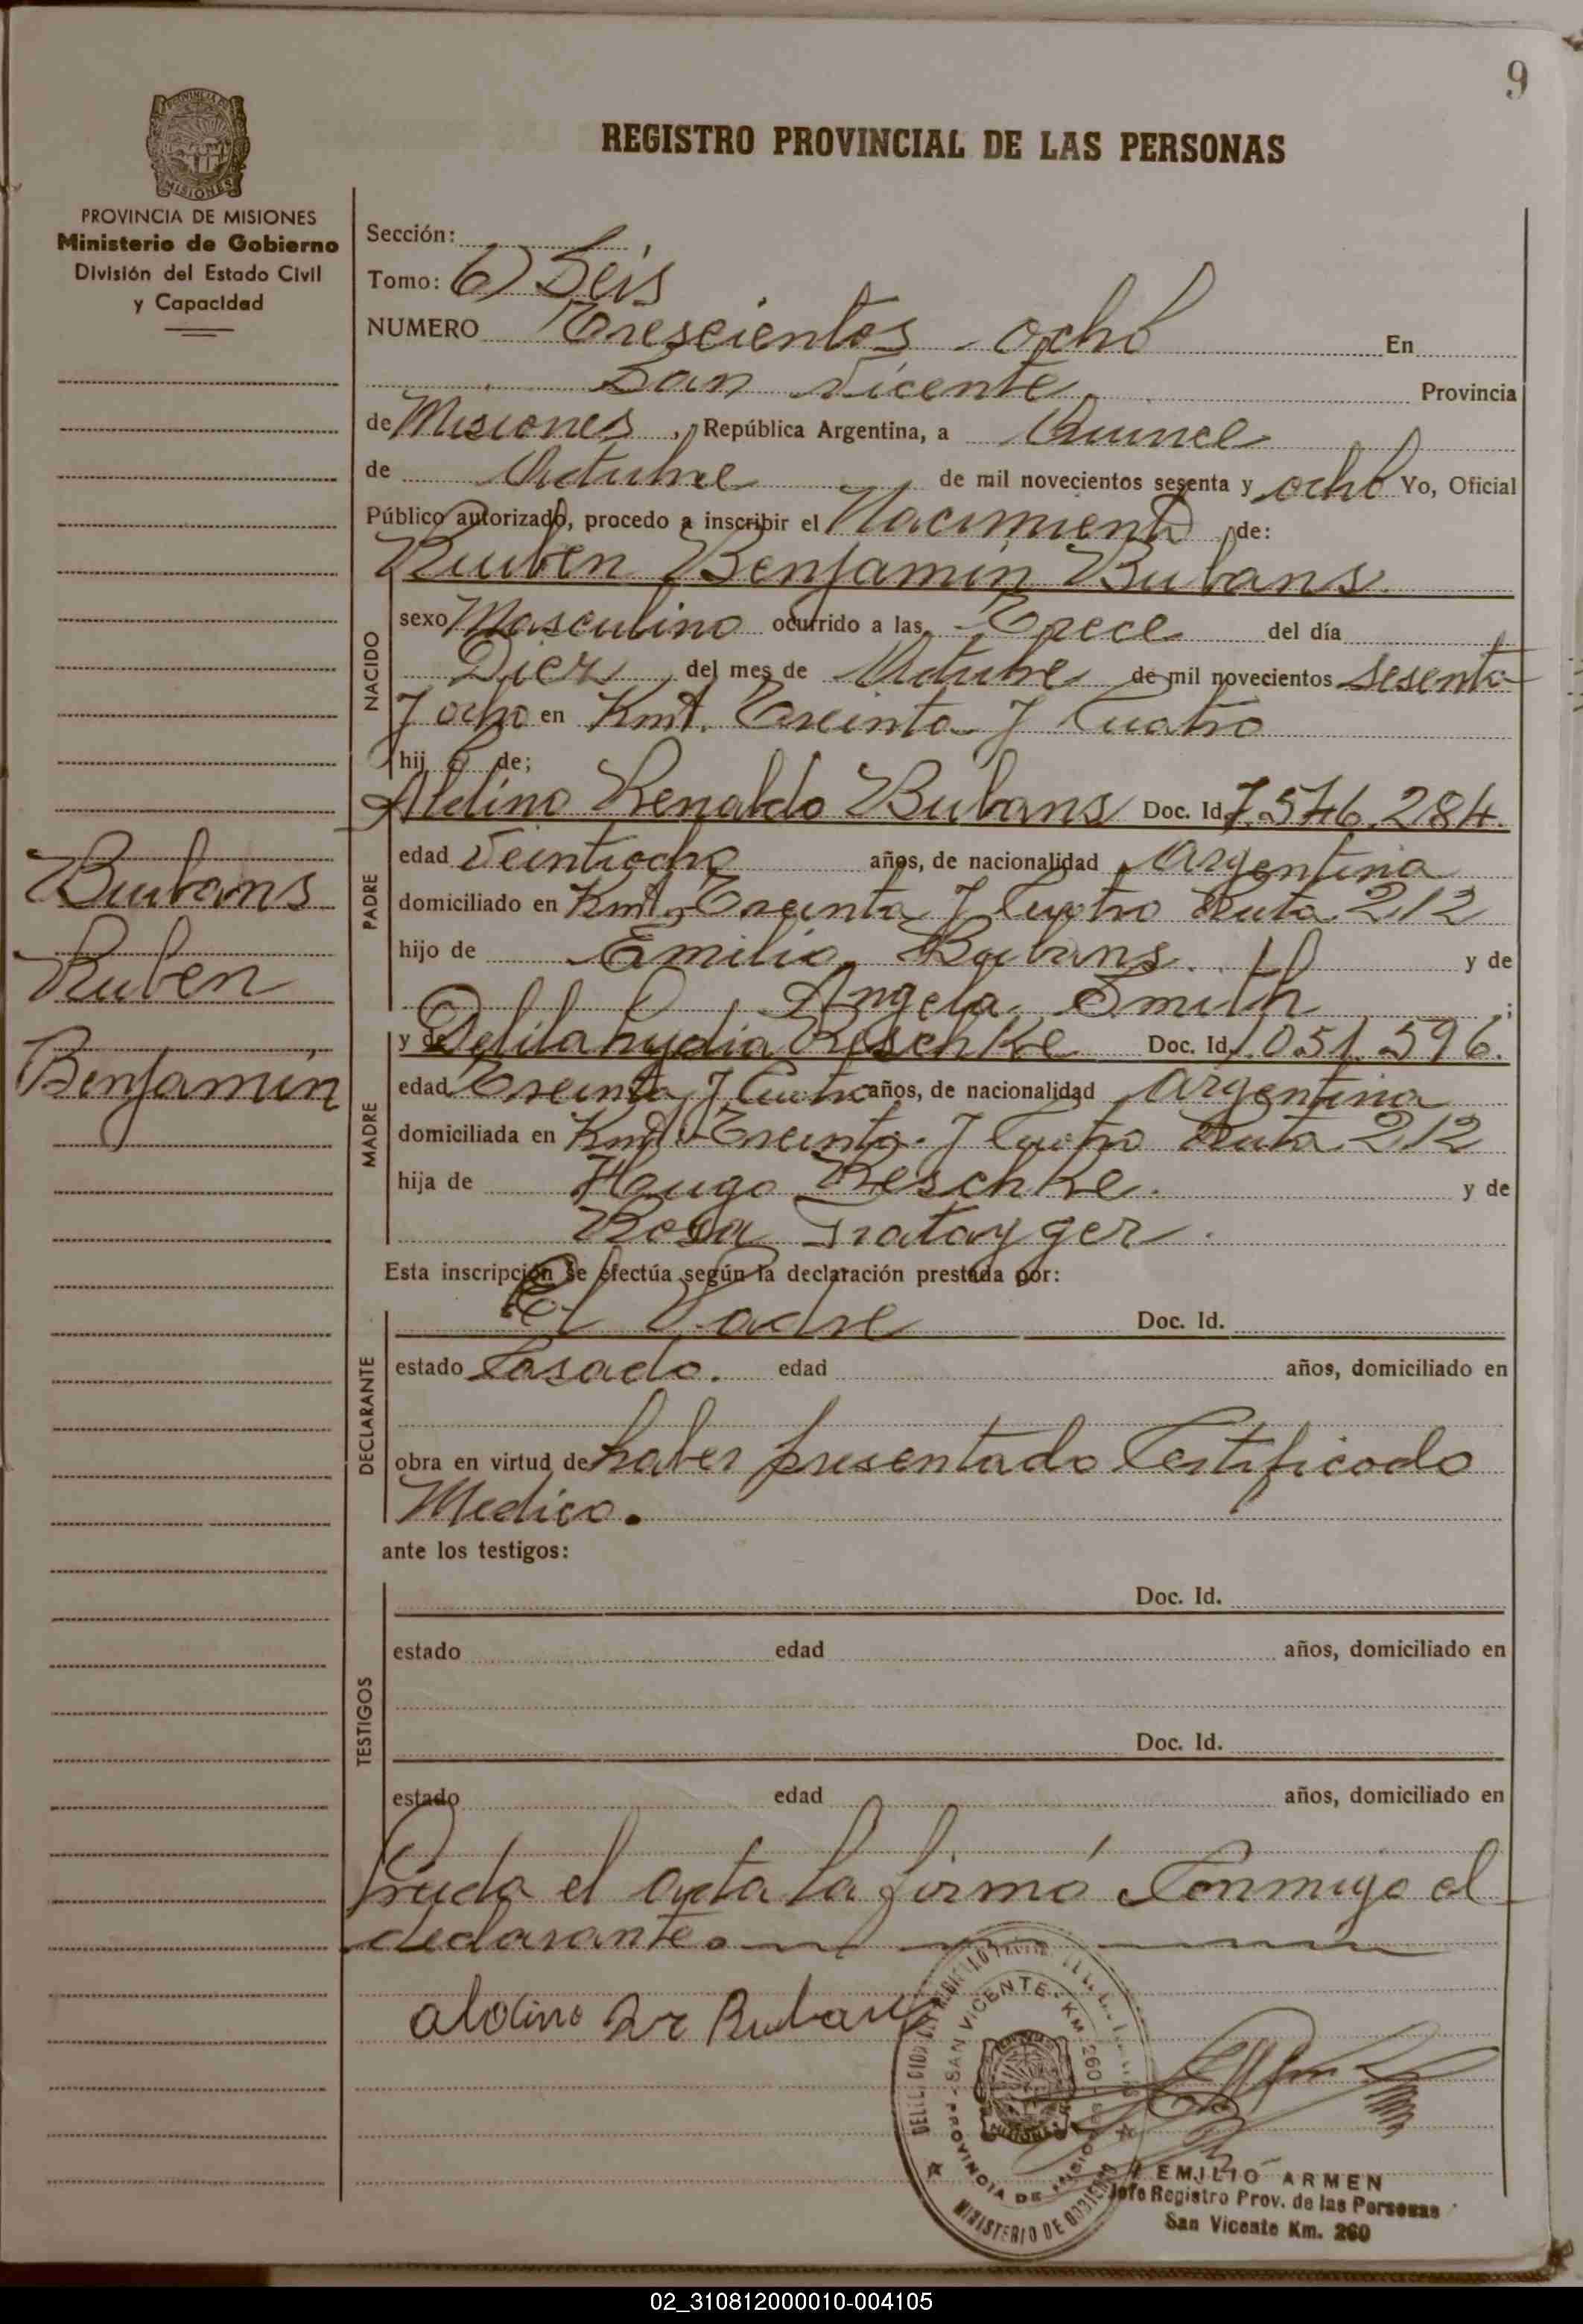 9
PROVINCIA DE MISIONES
Ministerio de Gobierno
División del Estado Civil
y Capacidad
REGISTRO PROVINCIAL DE LAS PERSONAS
Sección:
Tomo: 6) Seis
NUMERO Trescientos ocho En
San Vicente Provincia
de Misiones, República Argentina, a Quince
de Octubre de mil novecientos sesenta y ocho Yo, Oficial
Público autorizado, procedo a inscribir el Nacimiento de:
Ruben Benjamin Bubans.
NACIDO
sexo Masculino ocurrido a las Trece del día
Diez del mes de Octubre de mil novecientos sesenta
y ocho en Kmt. Treinta y Cuatro
hij o de;
Aldino Renaldo Bubans Doc. Id. 7.546.284.
PADRE
edad Veintiocho años, de nacionalidad Argentina
domiciliado en Kmt. Treinta y Cuatro Ruta 212
hijo de Emilio Bubans. y de
Angela Smith ;
y de Delila Lydia Reschke Doc. Id. 1051.596.
MADRE
edad Treinta y Cuatro años, de nacionalidad Argentina
domiciliada en Kmt. Treinta y Cuatro Ruta 212
hija de Hugo Reschke. y de
Rosa
Esta inscripción se efectúa según la declaración prestada por:
DECLARANTE
El Padre Doc. Id.
estado Casado. edad años, domiciliado en
obra en virtud de haber presentado Certificado
Medico.
ante los testigos:
TESTIGOS
Doc. Id.
estado edad años, domiciliado en
Doc. Id.
estado edad años, domiciliado en
el acta la firmó Conmigo el
declarante.
Bubans
Ruben
Benjamin
aldino Bubans
SAN VICENTE - KM. 260
PROVINCIA DE MISIONES
MINISTERIO DE GOBIERNO
EMILIO ARMEN
Jefe Registro Prov. de las Personas
San Vicente Km. 260
02_310812000010-004105